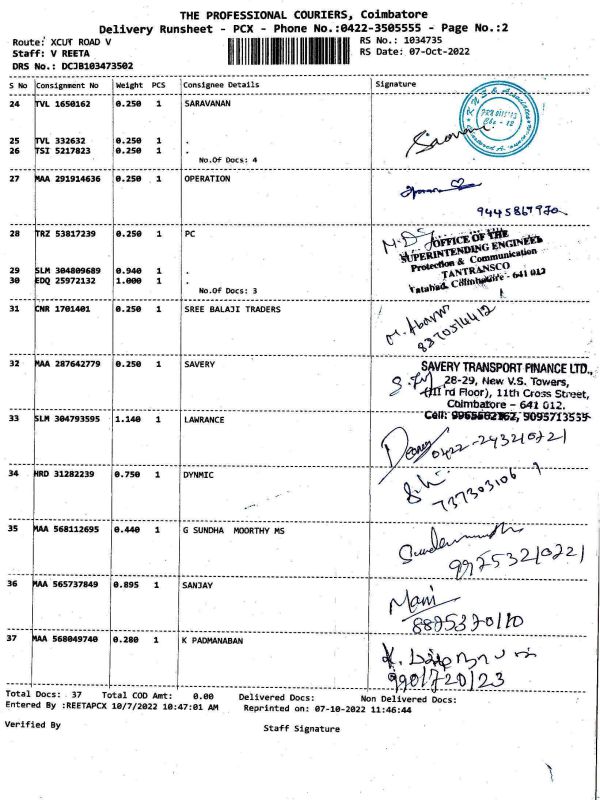 THE PROFESSIONAL COURIERS, Coimbatore
Delivery Runsheet - PCX - Phone No.:0422-3505555 - Page No.:2
Route: XCUT ROAD V RS No.: 1034735
Staff: V REETA RS Date: 07-Oct-2022
DRS No.: DCJB103473502
S No Consignment No Weight PCS Consignee Details Signature
24 TVL 1650162 0.250 1 SARAVANAN
25 TVL 332632 0.250 1 .
26 TSI 5217823 0.250 1 .
No.Of Docs: 4
27 MAA 291914636 0.250 1 OPERATION
28 TRZ 53817239 0.250 1 PC
OFFICE OF THE
SUPERINTENDING ENGINEER
Protection & Communication
TANTRANSCO
Tatabad, Coimbatore - 641 012
29 SLM 304809689 0.940 1 .
30 EDQ 25972132 1.000 1 .
No.Of Docs: 3
31 CNR 1701401 0.250 1 SREE BALAJI TRADERS
8370514412
32 MAA 287642779 0.250 1 SAVERY
SAVERY TRANSPORT FINANCE LTD.,
28-29, New V.S. Towers,
(III rd Floor), 11th Cross Street,
Coimbatore - 641 012.
Cell: 9965502162, 9095713555
33 SLM 304793595 1.140 1 LAWRANCE
0422-243210221
34 HRD 31282239 0.750 1 DYNMIC
737303106 9
35 MAA 568112695 0.440 1 G SUNDHA MOORTHY MS
36 MAA 565737849 0.895 1 SANJAY
Mani
8825370110
37 MAA 568049740 0.280 1 K PADMANABAN
9901720123
Total Docs: 37 Total COD Amt: 0.00 Delivered Docs: Non Delivered Docs:
Entered By :REETAPCX 10/7/2022 10:47:01 AM Reprinted on: 07-10-2022 11:46:44
Verified By Staff Signature